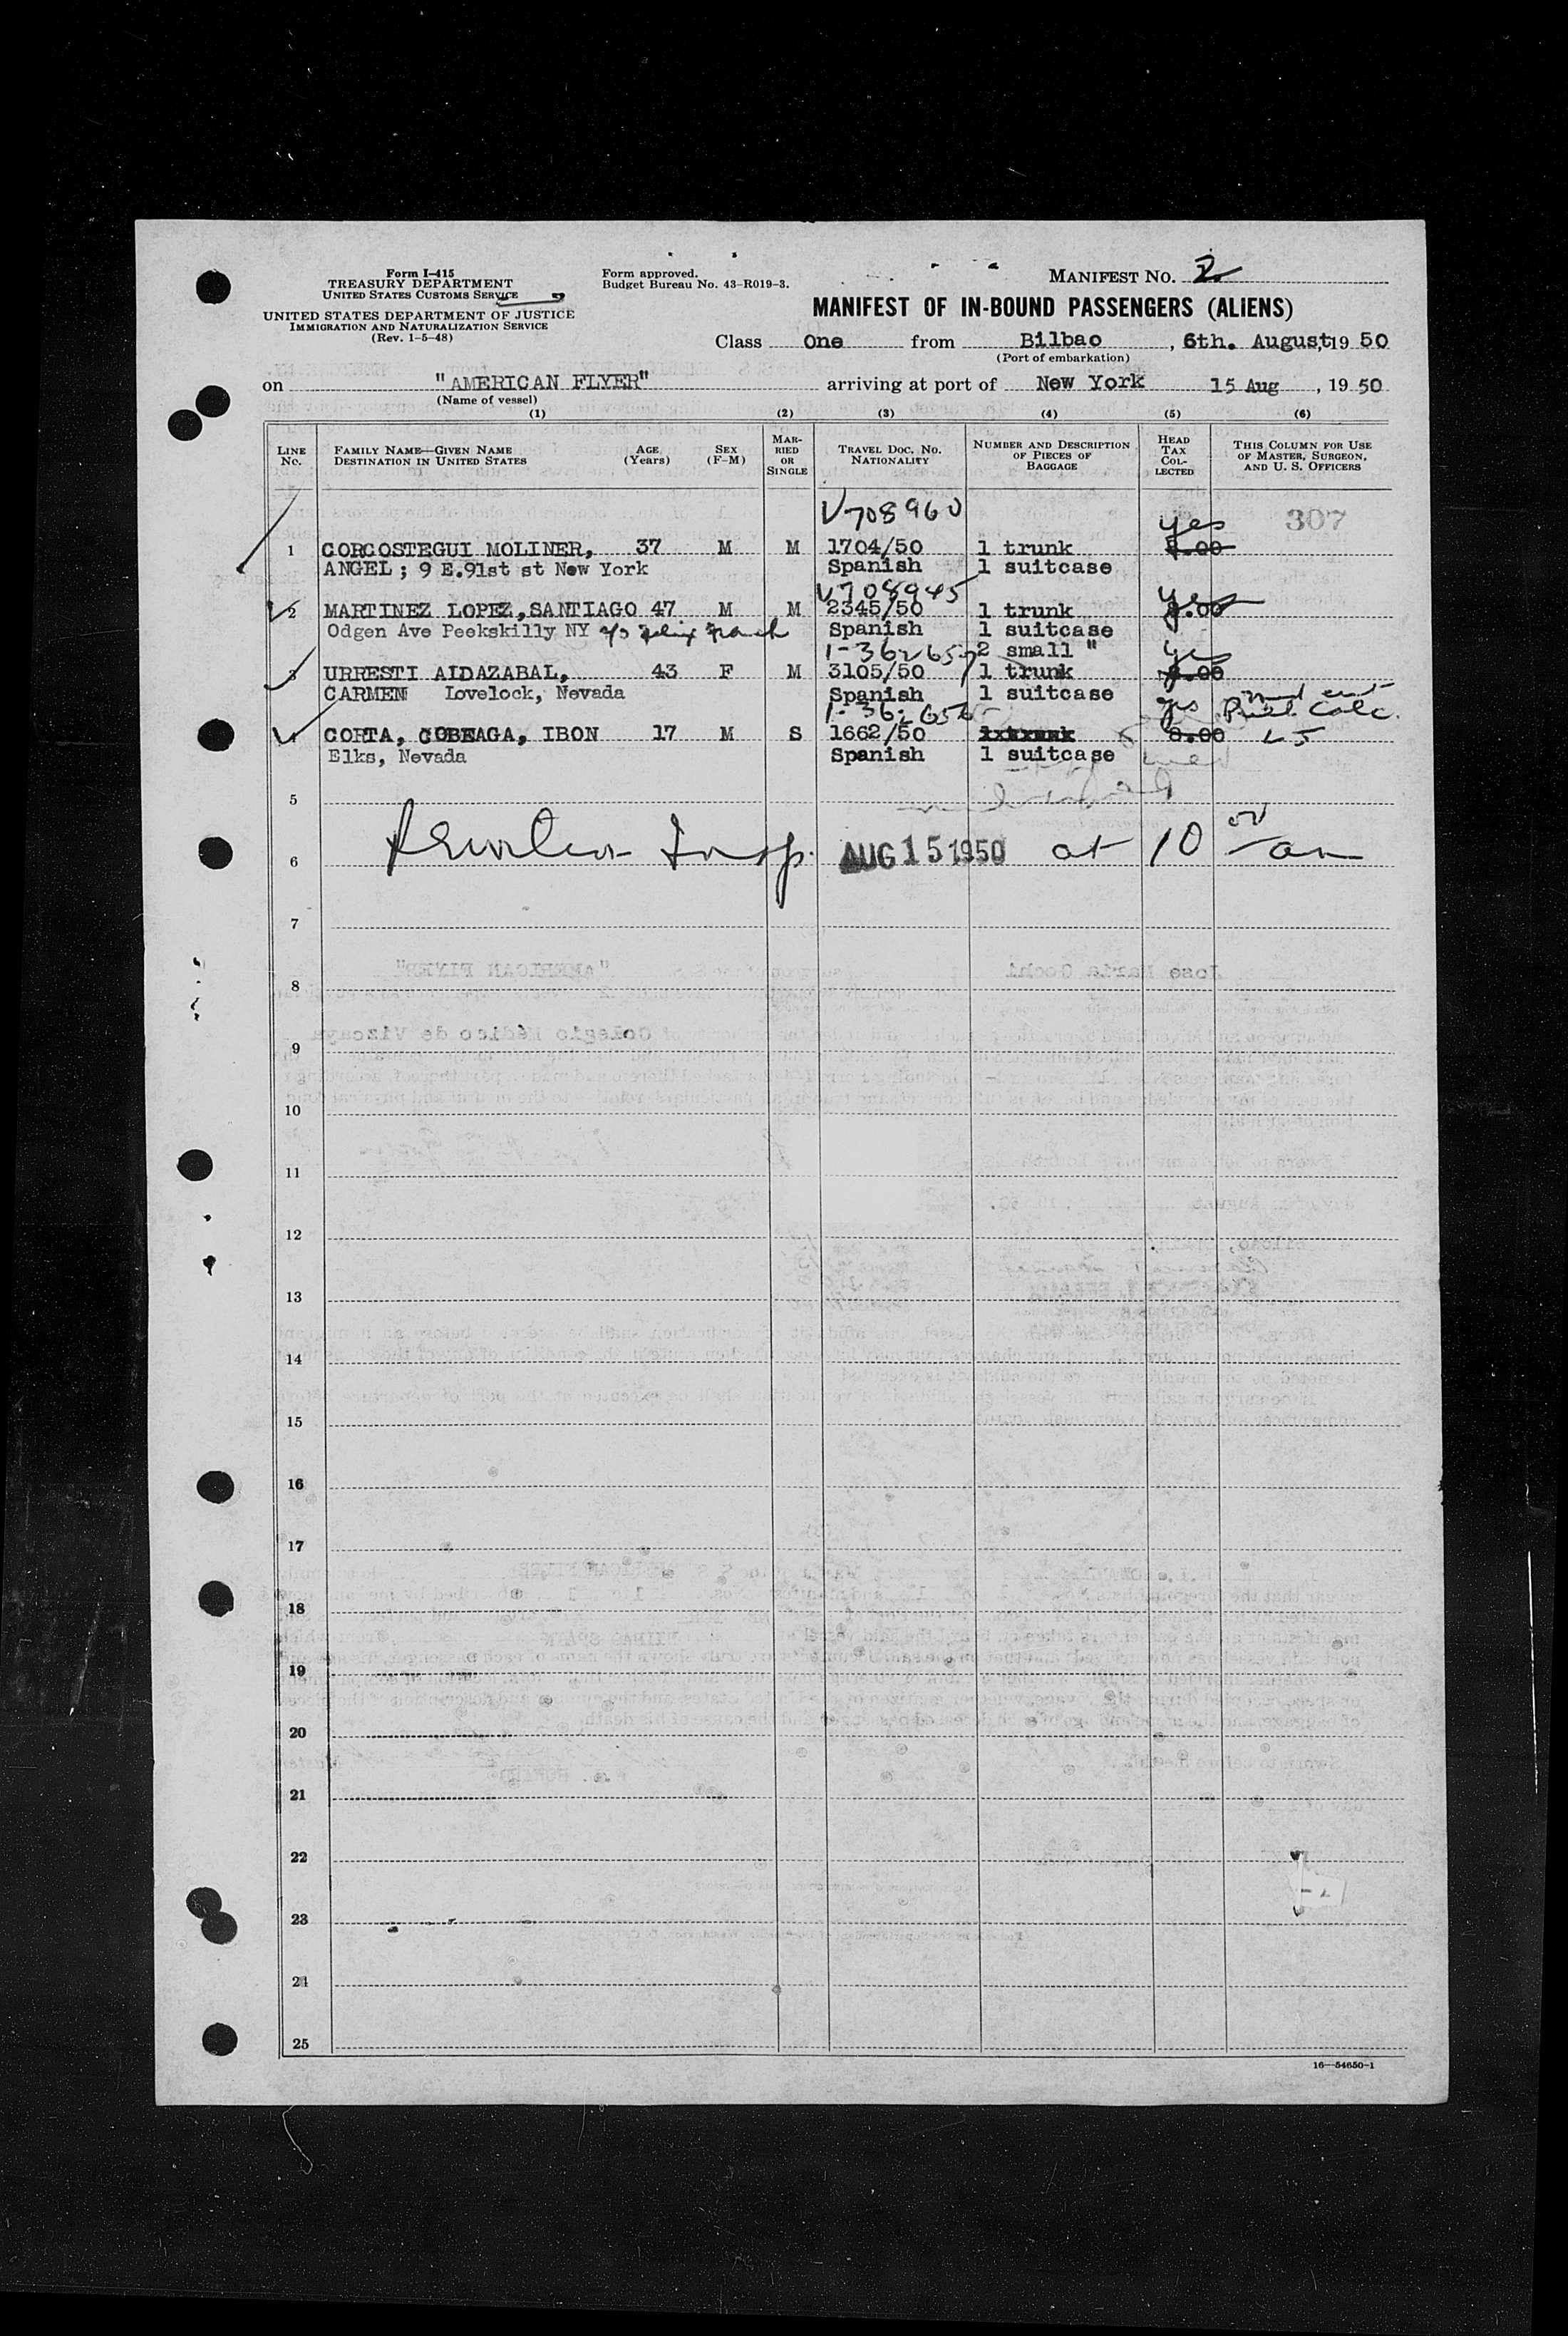 Form I-415
TREASURY DEPARTMENT
UNITED STATES CUSTOMS SERVICE
UNITED STATES DEPARTMENT OF JUSTICE
IMMIGRATION AND NATURALIZATION SERVICE
(Rev. 1-5-48)
Form approved.
Budget Bureau No. 43-R019-3.
MANIFEST NO. 2
MANIFEST OF IN-BOUND PASSENGERS (ALIENS)
Class One from Bilbao, 6th. August, 19 50
(Port of embarkation)
on "AMERICAN FLYER" arriving at port of New York 15 Aug, 19 50
(Name of vessel)
(1) (2) (3) (4) (5) (6)
LINE No. FAMILY NAME—GIVEN NAME DESTINATION IN UNITED STATES AGE (Years) SEX (F-M) MARRIED OR SINGLE TRAVEL DOC. NO. NATIONALITY NUMBER AND DESCRIPTION OF PIECES OF BAGGAGE HEAD TAX COLLECTED THIS COLUMN FOR USE OF MASTER, SURGEON, AND U. S. OFFICERS
V708960 yes 307
1 CORCOSTEGUI MOLINER, 37 M M 1704/50 1 trunk 8.00
ANGEL; 9 E.91st st New York Spanish 1 suitcase
V708945 yes
2 MARTINEZ LOPEZ,SANTIAGO 47 M M 2345/50 1 trunk 8.00
Odgen Ave Peekskilly NY Spanish 1 suitcase
2 small " yes
3 URRESTI ALDAZABAL, 43 F M 3105/50 1 trunk 8.00
CARMEN Lovelock, Nevada Spanish 1 suitcase
yes
4 CORTA, COBEAGA, IBON 17 M S 1662/50 8.00
Elks, Nevada Spanish 1 suitcase
5
6 Insp. AUG 15 1950 at 10 am
7
8
9
10
11
12
13
14
15
16
17
18
19
20
21
22
23
24
25
16—54650-1